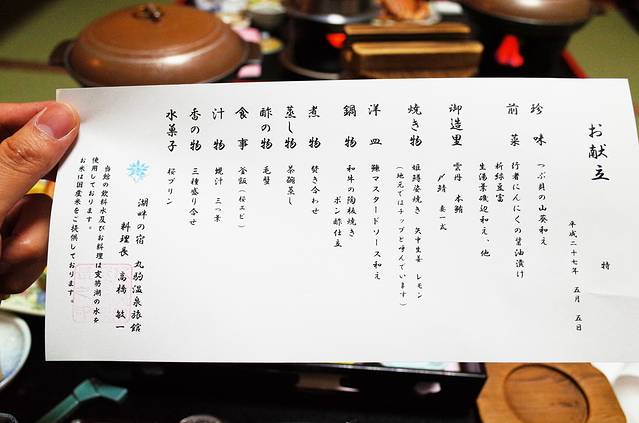 お献立
特
平成二十七年 五月 五日
珍味 つぶ貝の山葵和え
前菜 行者にんにくの醤油漬け
新緑豆富
生湯葉磯辺和え、他
御造里 雲丹 本鮪
〆鯖 妻一太
焼き物 姫鱒姿焼き 矢中生姜 レモン
(地元ではチップと呼んでいます)
洋皿 鰊マスタードソース和え
鍋物 和牛の陶板焼き
ポン酢仕立
煮物 焚き合わせ
蒸し物 茶碗蒸し
酢の物 毛蟹
食事 釜飯(桜エビ)
汁物 蜆汁 三つ葉
香の物 三種盛り合せ
水菓子 桜プリン
湖畔の宿 丸駒温泉旅館
料理長 高橋 敏一
当館の飲料水及びお料理は支笏湖の水を
使用しております。
お米は国産米をご提供しております。